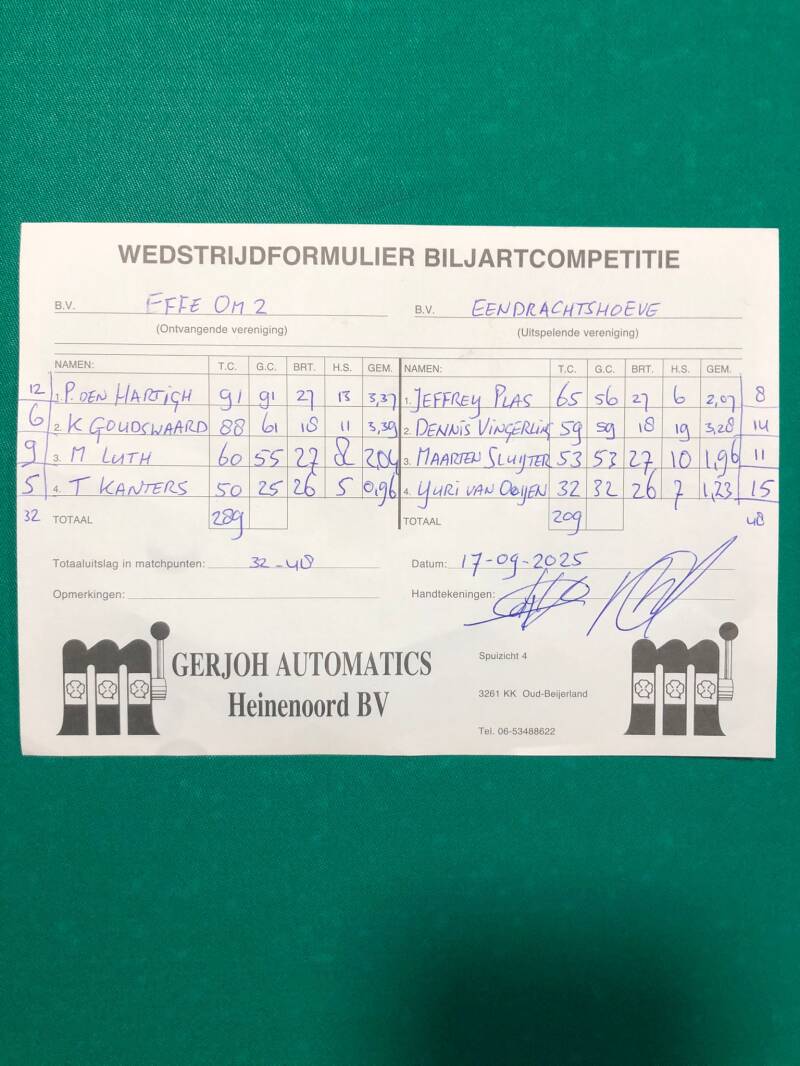 WEDSTRIJDFORMULIER BILJARTCOMPETITIE
B.V. EFFE OM 2 B.V. EENDRACHTSHOEVE
(Ontvangende vereniging) (Uitspelende vereniging)
NAMEN: T.C. G.C. BRT. H.S. GEM. NAMEN: T.C. G.C. BRT. H.S. GEM.
12 1. P. DEN HARTIGH 91 91 27 13 3,37 1. JEFFREY PLAS 65 56 27 6 2,07 8
6 2. K GOUDSWAARD 88 61 18 11 3,39 2. DENNIS VINGERLING 59 59 18 19 3,28 14
9 3. M LUTH 60 55 27 8 2,04 3. MAARTEN SLUIJTER 53 53 27 10 1,96 11
5 4. T KANTERS 50 25 26 5 0,96 4. YURI VAN OOIJEN 32 32 26 7 1,23 15
32 TOTAAL 289 TOTAAL 209 48
Totaaluitslag in matchpunten: 32-48 Datum: 17-09-2025
Opmerkingen: Handtekeningen:
GERJOH AUTOMATICS
Heinenoord BV
Spuizicht 4
3261 KK Oud-Beijerland
Tel. 06-53488622